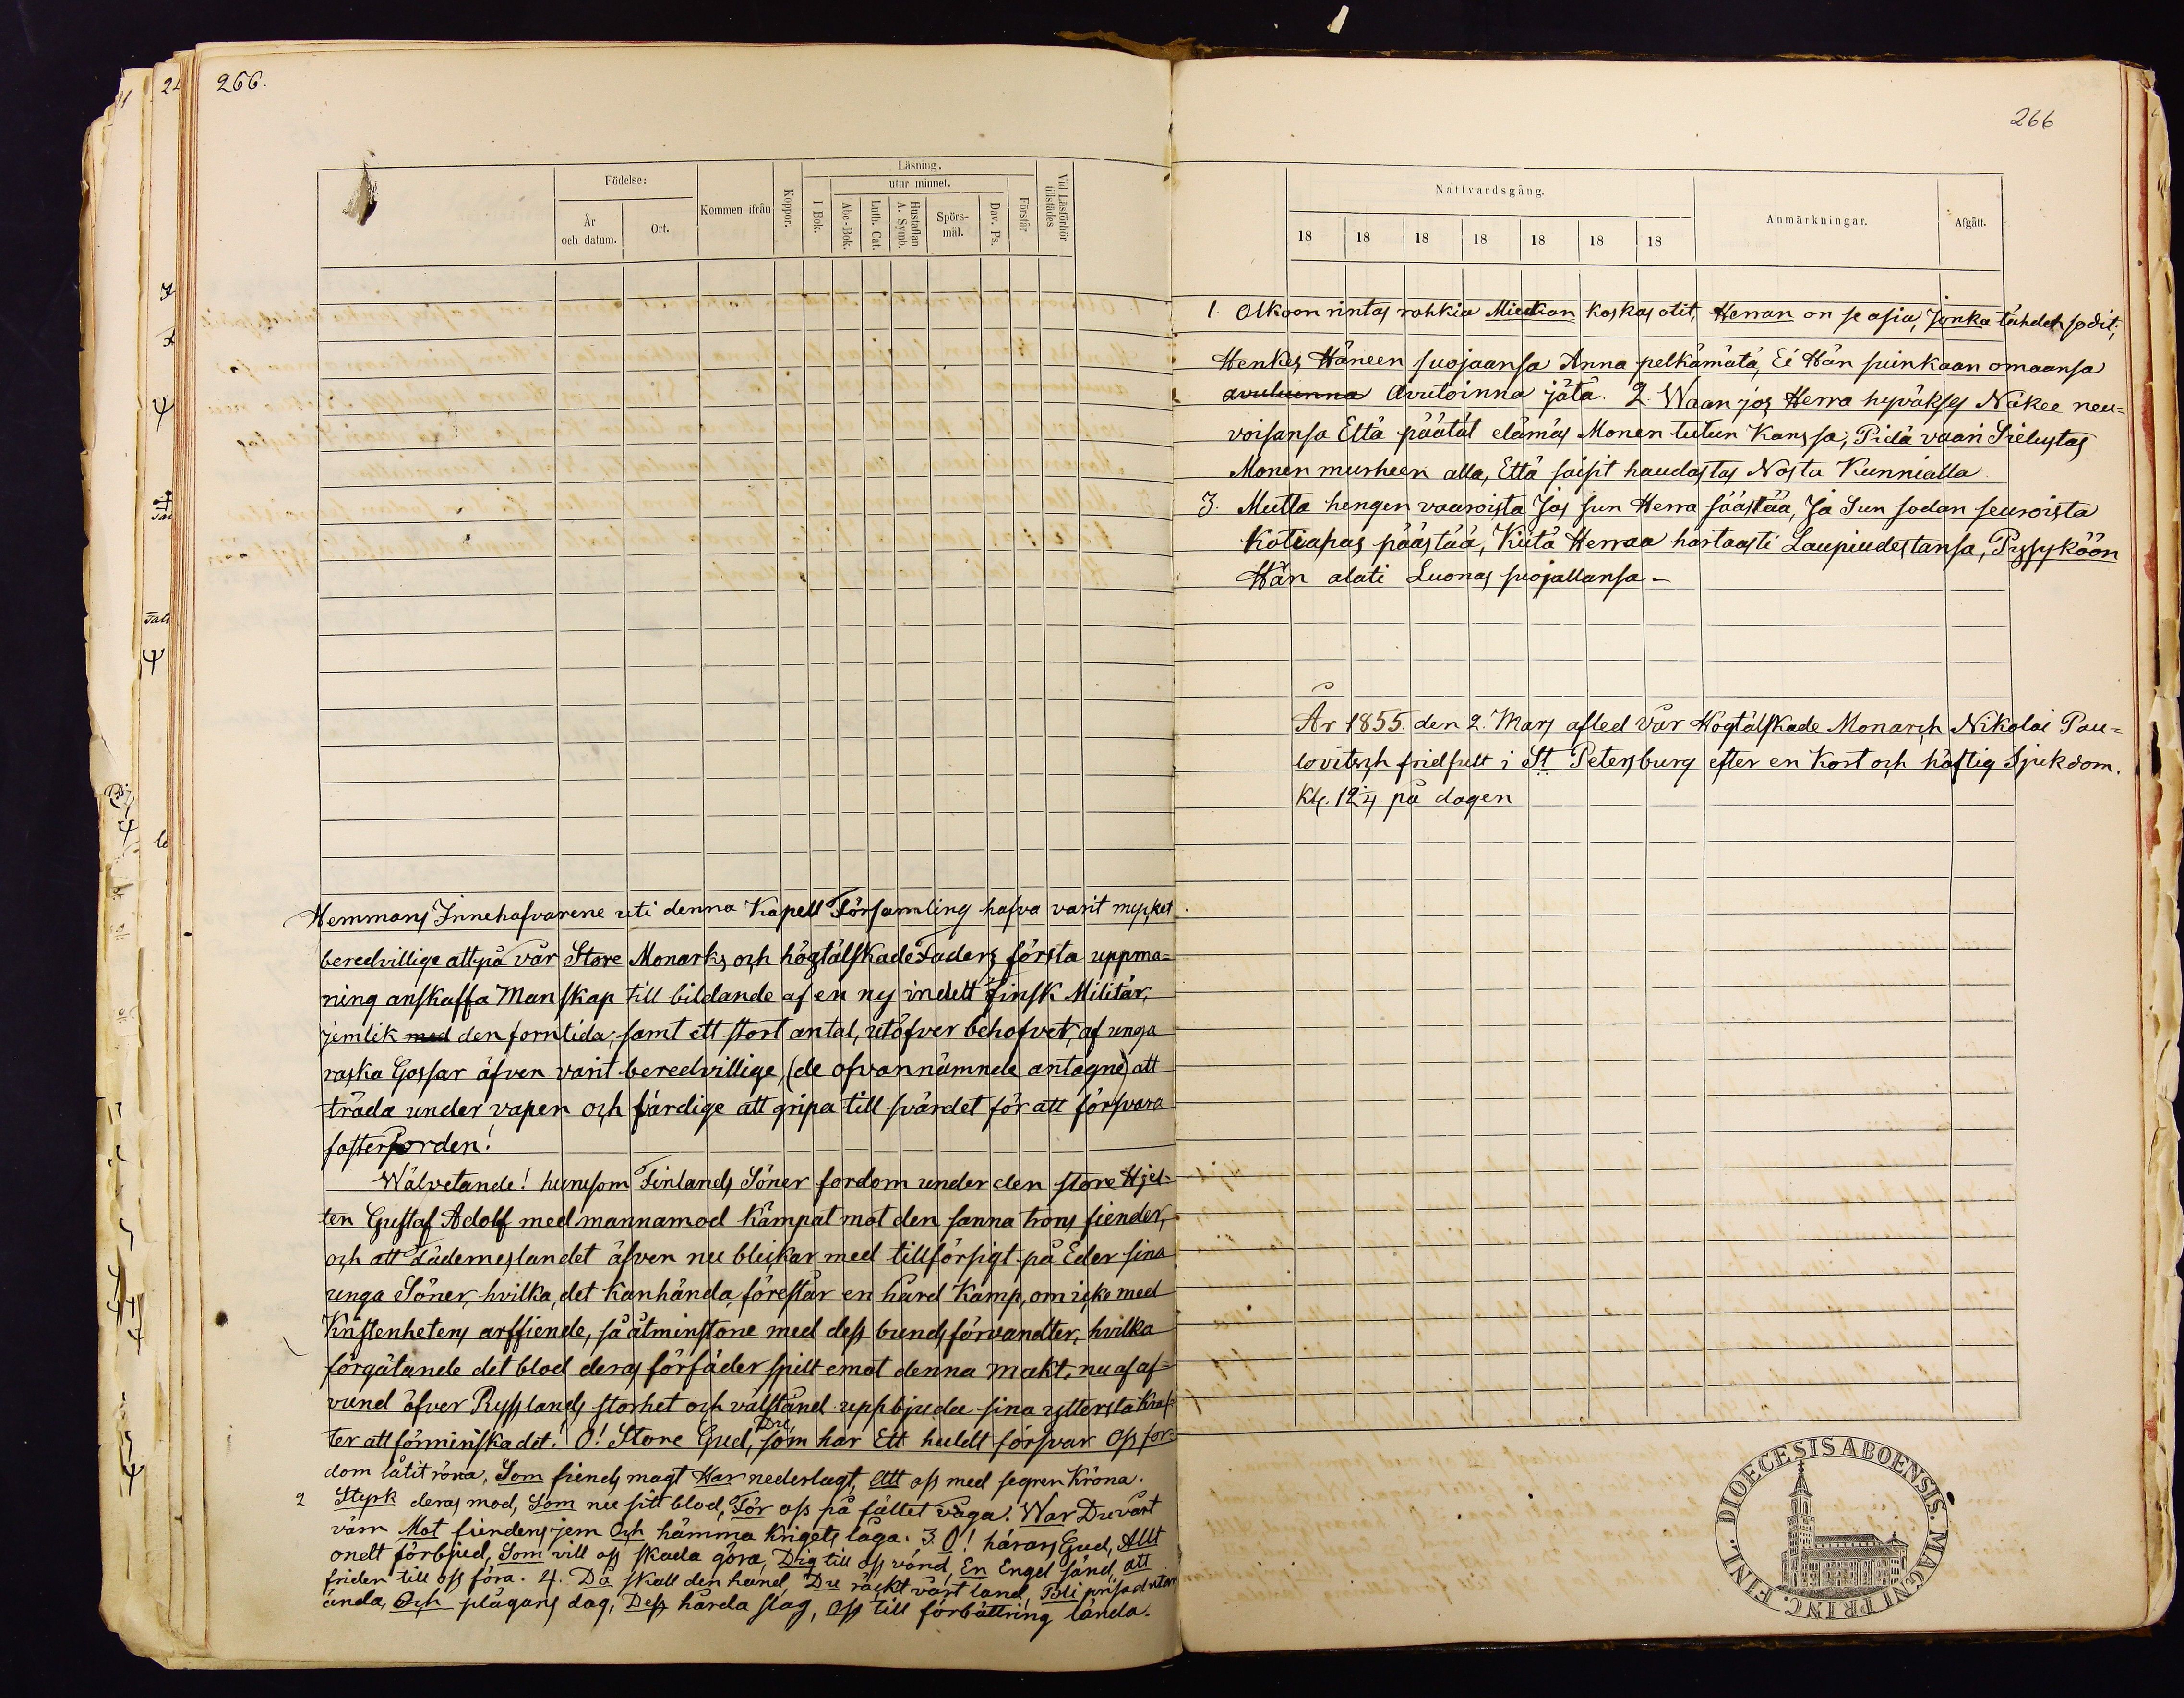 266.
Födelse:
År
och datum.
Ort.
Kommen ifrån
Koppor.
Läsning.
I Bok.
utur minnet.
Abc-Bok.
Luth. Cat.
Hustaflan
A. Symb.
Spörs-
mål.
Dav. Ps.
Förstår
Vid Läsförhör
tillstädes
Hemmans Innehafvarene uti denna Kapell Församling hafva varit mycket
beredvillige att på vår Store Monarks och högtälskade Faders första uppma=
ning anskaffa Manskap till bildande af en ny indelt Finsk Militär,
jemlik med den forntida; samt ett stort antal, utöfver behofvet, af unga
raska Gossar äfven varit beredvillige, (de ofvannämnde antagne) att
träda under vapen och färdige att gripa till svärdet för att försvara
fosterjorden!
Wälvetande! hurusom Finlands Söner fordom under den store Hjel-
ten Gustaf Adolf med mannamod kämpat mot den sanna trons fiender,
och att Fäderneslandet äfven nu blickar med tillförsigt på Eder sina
unga Söner, hvilka, det kanhända, förestår en hård Kamp, om icke med
Kristenhetens arffiende, så åtminstone med dess bundsförvandter, hvilka
förgätande det blod deras förfäder spillt emot denna makt, nu af af=
vund öfver Rysslands storhet och välstånd uppbjuda sina yttersta kraf=
ter att förminska det! O! Store Gud, Du som har Ett huldt försvar Oss for=
dom låtit röna, Som fiends magt Har nederlagt, Att oss med segren Kröna.
2 Styrk deras mod, Som nu sitt blod, För oss på fältet våga. War Du vårt
värn Mot fiendens jern Och hämma Krigets låga. 3. O! härars Gud, Allt
ondt förbjud, Som vill oss skada göra, Dig till oss vänd, En Engel sänd, att
friden till oss föra. 4. Då skall den hand, Du räckt vårt land, Bli prisad utan
ända, Och plågans dag, Dess hårda slag, Oss till förbättring lända.
266
Nattvardsgång.
18 18 18 18 18 18 18
Anmärkningar.
Afgått.
1. Olkoon rintas rohkia Miekan koskas otit, Herran on se asia, Jonka tähden sodit,
Henkes Häneen suojaansa Anna pelkämätä, Ei Hän suinkaan omaansa
avutoinna jätä. 2. Waan jos Herra hyväksys Näkee neu=
voisansa Että päätät elämäs Monen tutun Kanssa; Pidä vaari Sielustas
Monen murheen alla, Että saisit haudastas Nosta Kunnialla
3. Mutta hengen vaaroista Jos sun Herra säästää, Ja Sun sodan seuroista
Kotiapas päästää, Kiitä Herraa hartaasti Laupiudestansa, Pysyköön
Hän alati Luonas suojallansa –
År 1855. den 2. Mars afled Vår Högtälskade Monarch Nikolai Pau=
lovitsch fridfullt i St Petersburg efter en Kort och häftig Sjukdom.
Kl. 12¼ på dagen
DIOECESIS ABOENSIS. MAGNI PRINC. FINL.